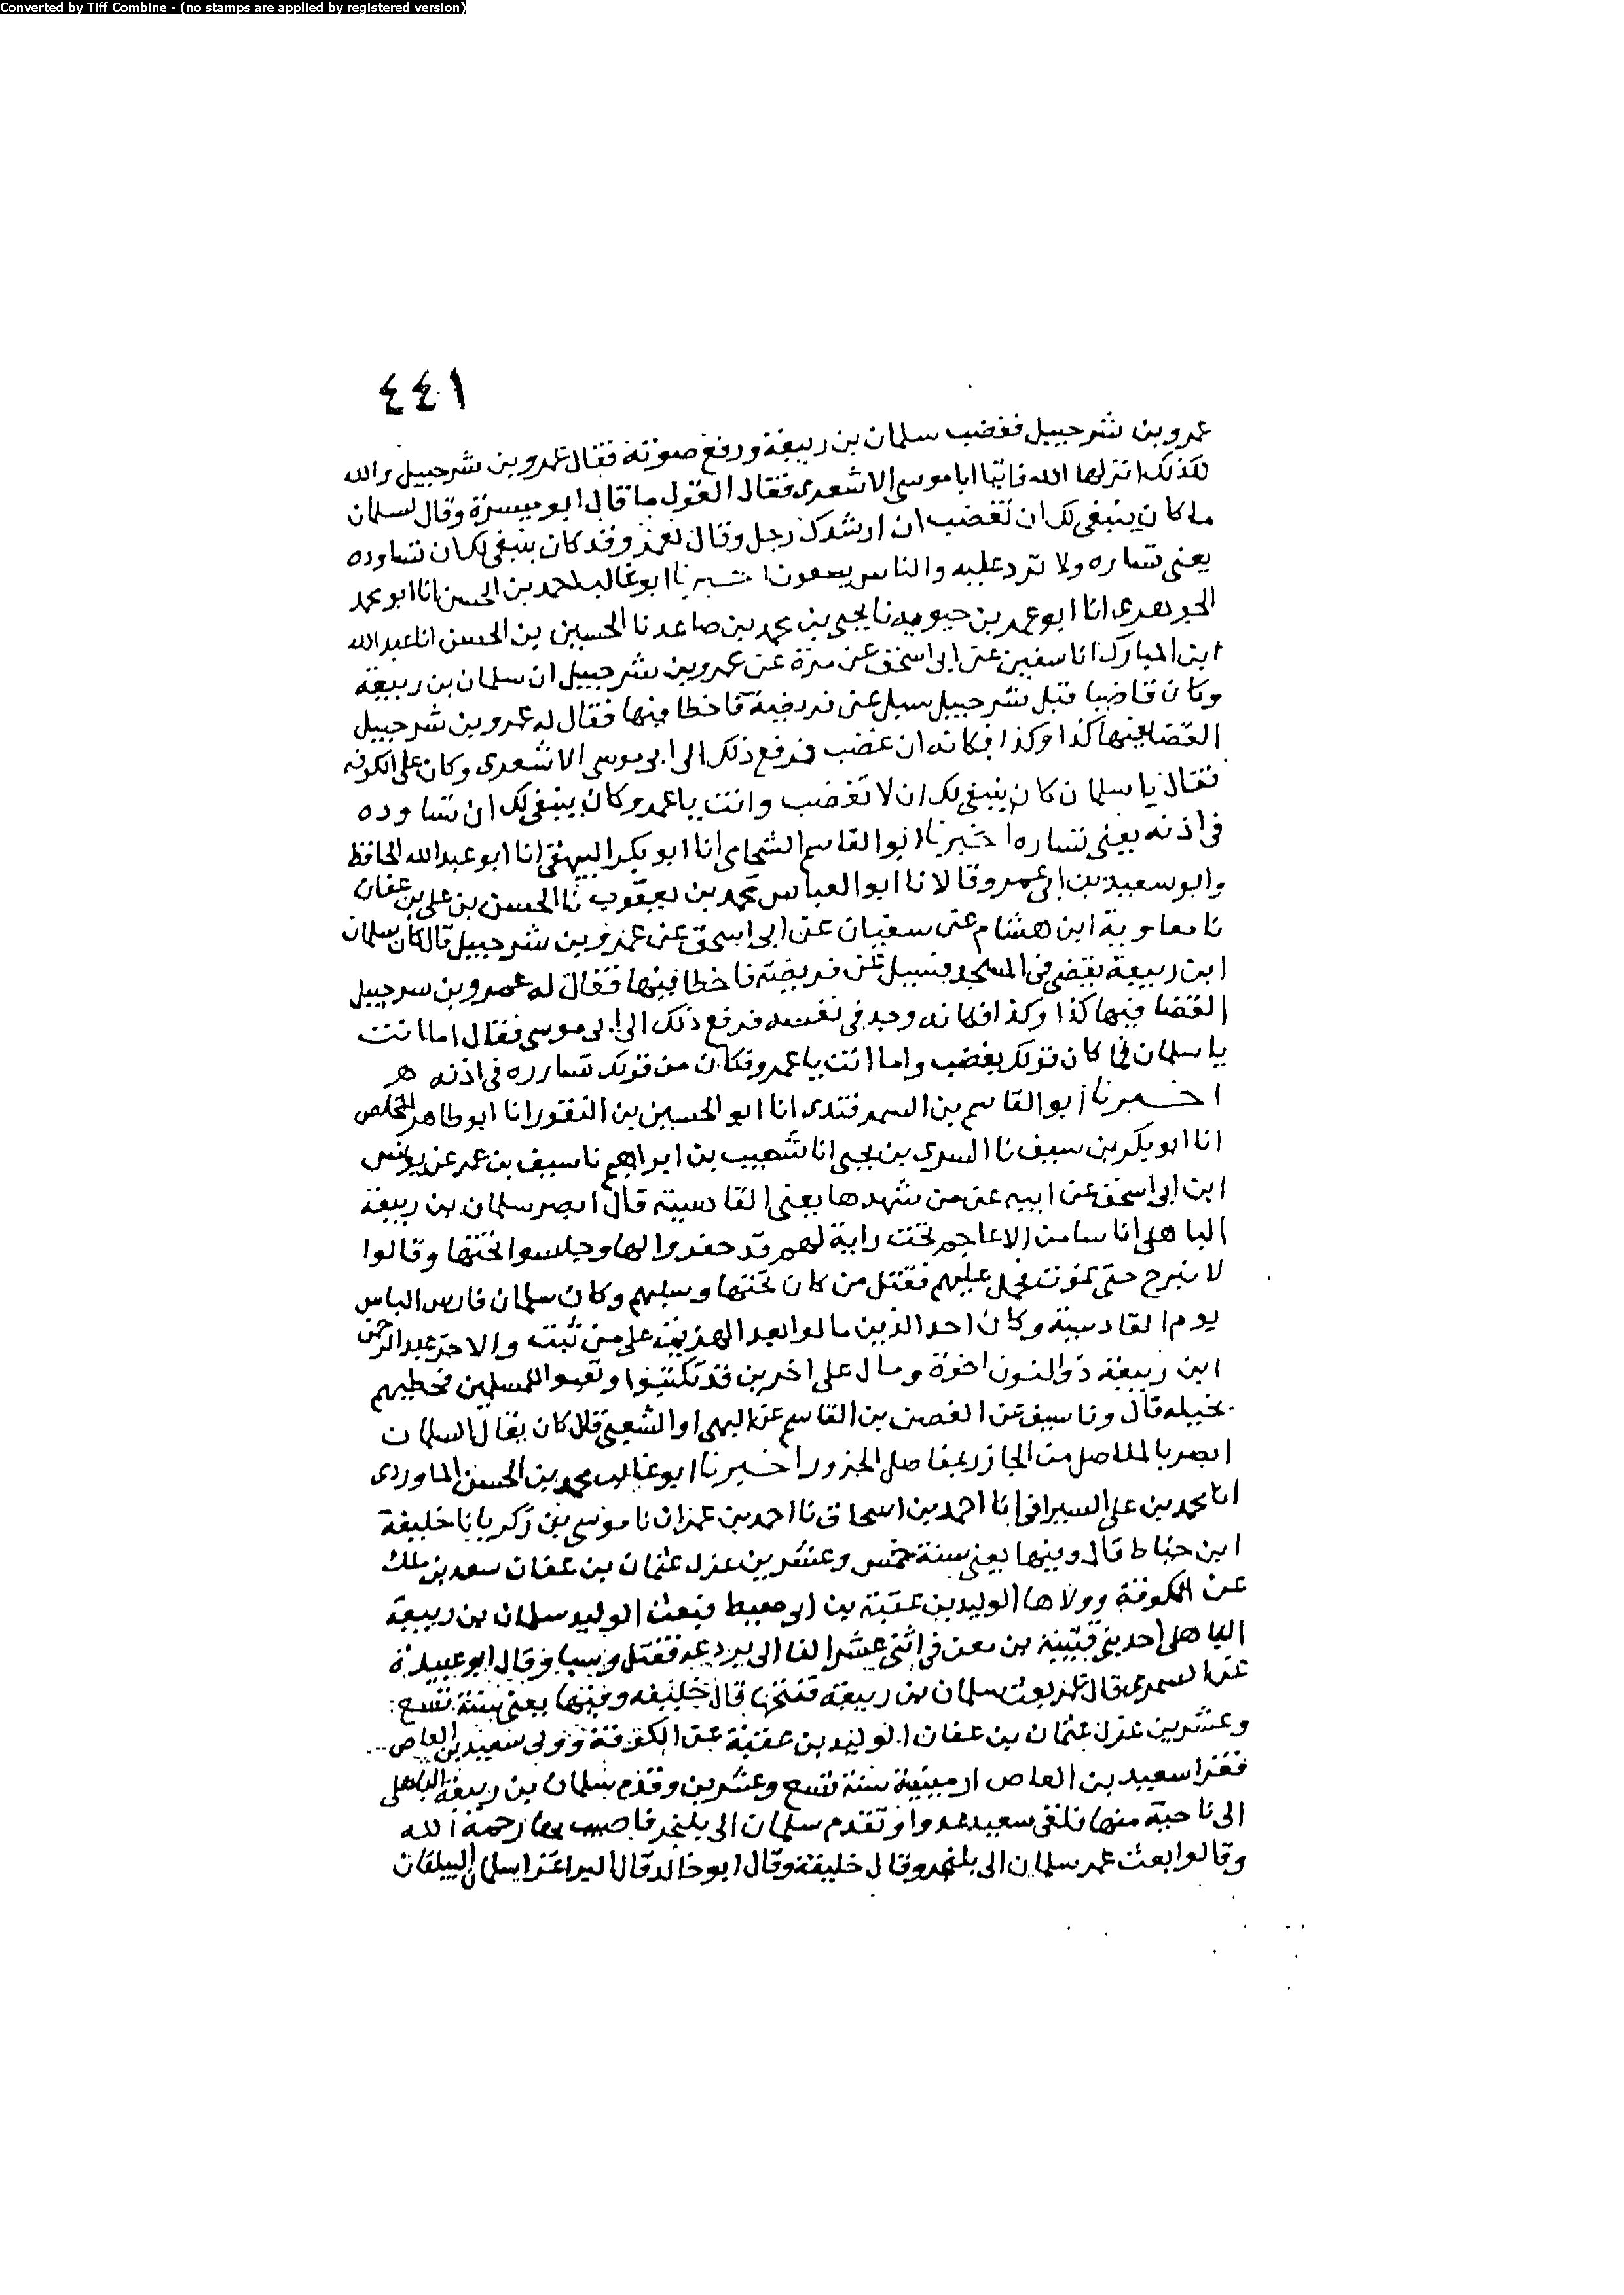 Converted by Tiff Combine - (no stamps are applied by registered version)
٤٤١
عمرو بن شرحبيل فغضب سلمان بن ربيعة ورفع صوته فقال عمرو بن شرحبيل والله
لكذلك انزلها الله فاتيا ابا موسى الاشعري فقال القول ما قال ابو ميسرة وقال لسلمان
ما كان ينبغي لك ان تغضب ان ارشدك رجل وقال لعمرو قد كان ينبغي لك ان تساوده
يعني تساره ولا ترد عليه والناس يسمعون اخبرنا ابو غالب احمد بن الحسن انا ابو محمد
الجوهري انا ابو عمر بن حيويه نا يحيى بن محمد بن صاعد نا الحسين بن الحسن انا عبد الله
ابن المبارك انا سفين عن ابي اسحق عن مرة عن عمرو بن شرحبيل ان سلمان بن ربيعة
وكان قاضيا قبل شرحبيل سيل عن فريضة فاخطا فيها فقال له عمرو بن شرحبيل
القضا فيها كذا وكذا فكانه ان غضب فرفع ذلك الى ابي موسى الاشعري وكان على الكوفه
فقال يا سلمان كان ينبغي لك ان لا تغضب وانت يا عمرو كان ينبغي لك ان تساوده
في اذنه يعني تساره اخبرنا ابو القاسم الشحامي انا ابو بكر البيهقي انا ابو عبد الله الحافظ
وابو سعيد بن ابي عمرو قالا نا ابو العباس محمد بن يعقوب نا الحسن بن علي بن عفان
نا معاوية ابن هشام عن سفيان عن ابي اسحق عن عمرو بن شرحبيل قال كان سلمان
ابن ربيعة يقضي في المسجد فسيل عن فريضة فاخطا فيها فقال له عمرو بن سرحبيل
القضا فيها كذا وكذا فكانه وجد في نفسه فرفع ذلك الى ابي موسى فقال اما انت
يا سلمان فما كان قولك يغضب واما انت يا عمرو فكان من قولك تسارره في اذنه هـ
اخبرنا ابو القاسم بن السمرقندي انا ابو الحسين بن النقور انا ابو طاهر المخلص
انا ابو بكر بن سيف نا السري بن يحيى انا شعيب بن ابراهيم نا سيف بن عمر عن يونس
ابن ابي اسحق عن ابيه عن من شهدها يعني القادسية قال ابصر سلمان بن ربيعة
الباهلي اناسا من الاعاجم تحت راية لهم قد حفروا لها وجلسوا تحتها وقالوا
لا نبرح حتى نموت فحمل عليهم فقتل من كان تحتها وسلبهم وكان سلمان فارس الناس
يوم القادسية وكان احد الذين مالوا بعد الهزيمة على من ثبت والاخر عبد الرحمن
ابن ربيعة ذو النون اخوه ومال على اخرين قد تكتبوا وتعبوا للمسلمين فحطيهم
بخيله قال ونا سيف عن الغصن بن القاسم عن البهي او الشعبي قال كان يقال لسلمان
ابصر بالمفاصل من الجازر بمفاصل الجزور اخبرنا ابو غالب محمد بن الحسن الماوردي
انا محمد بن علي السيرافي انا احمد بن اسحاق نا احمد بن عمران نا موسى بن زكريا نا خليفة
ابن خياط قال وفيها يعني سنة خمس وعشرين عزل عثمان بن عفان سعد بن ملك
عن الكوفة وولاها الوليد بن عقبة بن ابي معيط فبعث الوليد سلمان بن ربيعة
الباهلي احد بني قتيبة بن معن في اثني عشر الفا الى بردعه فقتل وسبا وقال ابو عبيدة
عن السمري قال ثم بعث سلمان بن ربيعة ففتحها قال خليفه وفيها يعني سنة تسع
وعشرين عزل عثمان بن عفان الوليد بن عقبة عن الكوفة وولى سعيد بن العاص
فغزا سعيد بن العاص ارمينية سنة تسع وعشرين وقدم سلمان بن ربيعة الباهلي
الى ناحية منها فلقي سعيد عدوا وتقدم سلمان الى بلنجر فاصيب بها رحمة الله
وقالوا بعث عمر سلمان الى بلنجر وقال خليفة وقال ابو خالد قال البرا غزا سلمان البيلقان